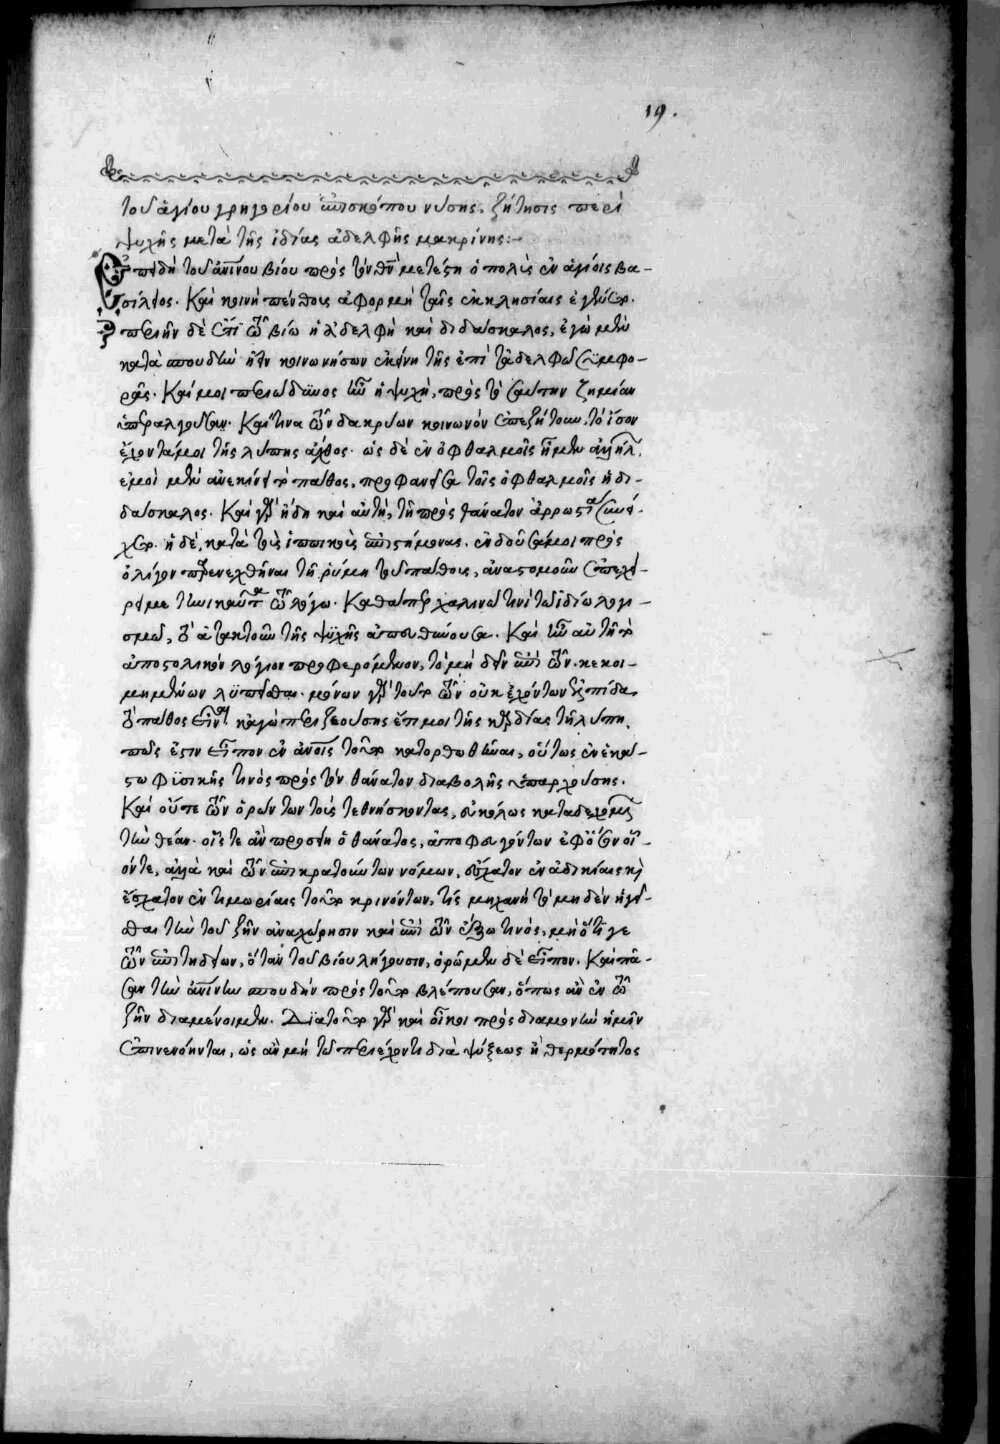 19.
τοῦ ἁγίου γρηγορίου ἐπισκόπου νύσης, ζήτησις περὶ
ψυχῆς μετὰ τῆς ἰδίας ἀδελφῆς μακρίνης:-
Ἐπειδὴ τοῦ ἀνίνου βίου πρὸς τὸν θν̄ μετέστη ὁ πολὺς ἐν ἁγίοις βα-
σίλειος. Καὶ κοινὴ πένθους ἀφορμὴ ταῖς ἐκκλησίαις ἐγένετο.
περιῆν δὲ ἔτι τῷ βίῳ ἡ ἀδελφὴ καὶ διδάσκαλος, ἐγὼ μὲν
κατὰ σπουδὴν ᾔειν κοινωνήσων ἐκείνη τῆς ἐπὶ τῷ ἀδελφῷ συμφο-
ρᾶς. Καί μοι περιώδυνος ἦν ἡ ψυχὴ, πρὸς τοσαύτην ζημίαν
ὑπεραλγοῦσαν. Καί τινα τῶν δακρύων κοινωνὸν ἐπεζήτουν, τὸ ἴσον
ἔχοντά μοι τῆς λύπης ἄχθος. ὡς δὲ ἐν ὀφθαλμοῖς ἦμεν ἀλλήλ.
ἐμοὶ μὲν ἀνεκίνει τὸ πάθος, προφανεῖσα τοῖς ὀφθαλμοῖς ἡ δι-
δάσκαλος. Καὶ γὰρ ἤδη καὶ αὐτὴ, τῆ πρὸς θάνατον ἀρρωστία συνεί-
χετο. ἡ δὲ, κατὰ τοὺς ἱππικοὺς ἐπιστήμονας, ἐνδοῦσά μοι πρὸς
ὀλίγον παρενεχθῆναι τῆ ῥύμη τοῦ πάθους, ἀναστομοῦν ἐπεχεί-
ρει με τῶ λόγω. Καθάπερ χαλινῶ τινὶ τῶ ἰδίω λογι-
σμῶ, τὸ ἀτακτοῦν τῆς ψυχῆς ἀπευθύνουσα. Καὶ ἦν αὐτῆ τὸ
ἀποστολικὸν λόγιον προφερόμενον, τὸ μὴ δεῖν ἐπὶ τῶν κεκοι-
μημένων λυπεῖσθαι. μόνων γὰρ τοῦτο τῶν οὐκ ἐχόντων ἐλπίδα,
τὸ πάθος εἶναι κἀγὼ περιζεούσης ἔτι μοι τῆς καρδίας τῆ λύπη,
πῶς ἐστιν εἶπον ἐν ἀνοις τοῦτο κατορθωθῆναι, οὕτως ἐν ἑκά-
στω φυσικῆς τινὸς πρὸς τὸν θάνατον διαβολῆς ὑπαρχούσης.
Καὶ οὔτε τῶν ὁρώντων τοὺς τεθνήσκοντας, εὐκόλως καταδεχομένων
τὴν θέαν. οἷς τε ἂν προσίη ὁ θάνατος, ἀποφευγόντων ἐφ᾽ ὅσον οἷ-
όντε, ἀλλὰ καὶ τῶν ἐπικρατούντων νόμων, ἔσχατον ἐν ἀδικίαις καὶ
ἔσχατον ἐν τιμωρίαις τοῦτο κρινόντων, τίς μηχανὴ τὸ μηδὲν ἡγεῖ-
σθαι τὴν τοῦ ζῆν ἀναχώρησιν καὶ ἐπὶ τῶν ἔξω τινὸς, μὴ ὅτι γε
τῶν ἐπιτηδείων, ὅταν τοῦ βίου λήγουσιν, ὁρῶμεν δὲ εἶπον. Καὶ πᾶ-
σαν τὴν ἀνίνην σπουδὴν πρὸς τοῦτο βλέπουσαν, ὅπως ἂν ἐν τῷ
ζῆν διαμένοιμεν. Διατοῦτο γὰρ καὶ οἶκοι πρὸς διαμονὴν ἡμῖν
ἐπινενόηνται, ὡς ἂν μὴ τῶ περιέχοντι διὰ ψύξεως ἢ θερμότητος